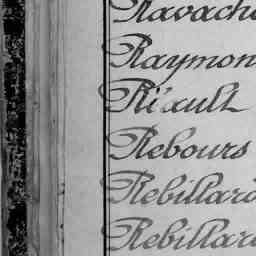 Ravach
Raymon
Riault
Rebours
Rebillard
Rebillard